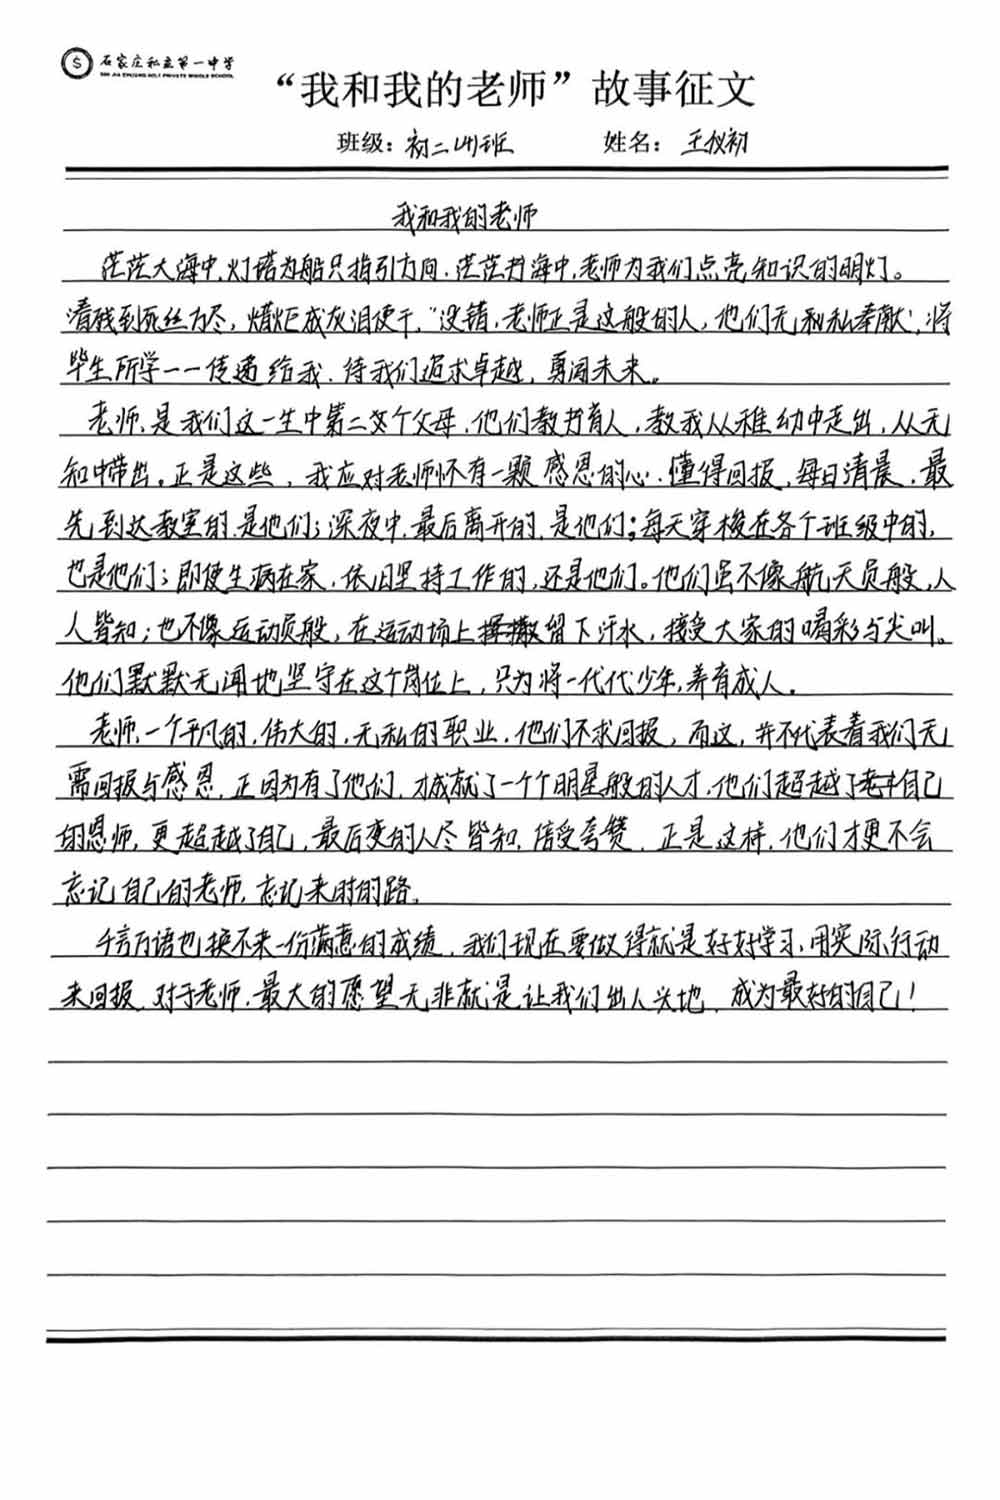 石家庄私立第一中学
SHI JIA ZHUANG NO.1 PRIVATE MIDDLE SCHOOL
“我和我的老师”故事征文
班级：初二班 姓名：王仪初
我和我的老师
茫茫大海中，灯塔为船只指引方向，茫茫书海中，老师为我们点亮知识的明灯。
春残到死丝方尽，炬成灰泪使干，“没错，老师正是这般的人，他们无私奉献，将
毕生所学一一传递给我，待我们追求卓越，勇闯未来。
老师，是我们这一生中第二个父母，他们教书育人，教我从稚幼中走出，从无
知中带出。正是这些，我应对老师怀有一颗感恩的心，懂得回报，每日清晨，最
先到达教室的，是他们；深夜中，最后离开的，是他们；每天穿梭在各个班级中的，
也是他们；即使生病在家，依旧坚持工作的，还是他们。他们虽不像航天员般，人
人皆知；也不像运动员般，在运动场上留下汗水，接受大家的喝彩与尖叫。
他们默默无闻地坚守在这个岗位上，只为将一代代少年，养育成人。
老师，一个平凡的，伟大的，无私的职业，他们不求回报，而这，并不代表着我们无
需回报与感恩，正因为有了他们，才成就了一个个明星般的人才，他们超越了自己
的恩师，更超越了自己，最后变的人尽皆知，倍受夸赞，正是这样，他们才更不会
忘记自己的老师，忘记来时的路。
千言万语也换不来一份满意的成绩，我们现在要做得就是好好学习，用实际行动
来回报，对于老师，最大的愿望无非就是让我们出人头地，成为最好的自己！